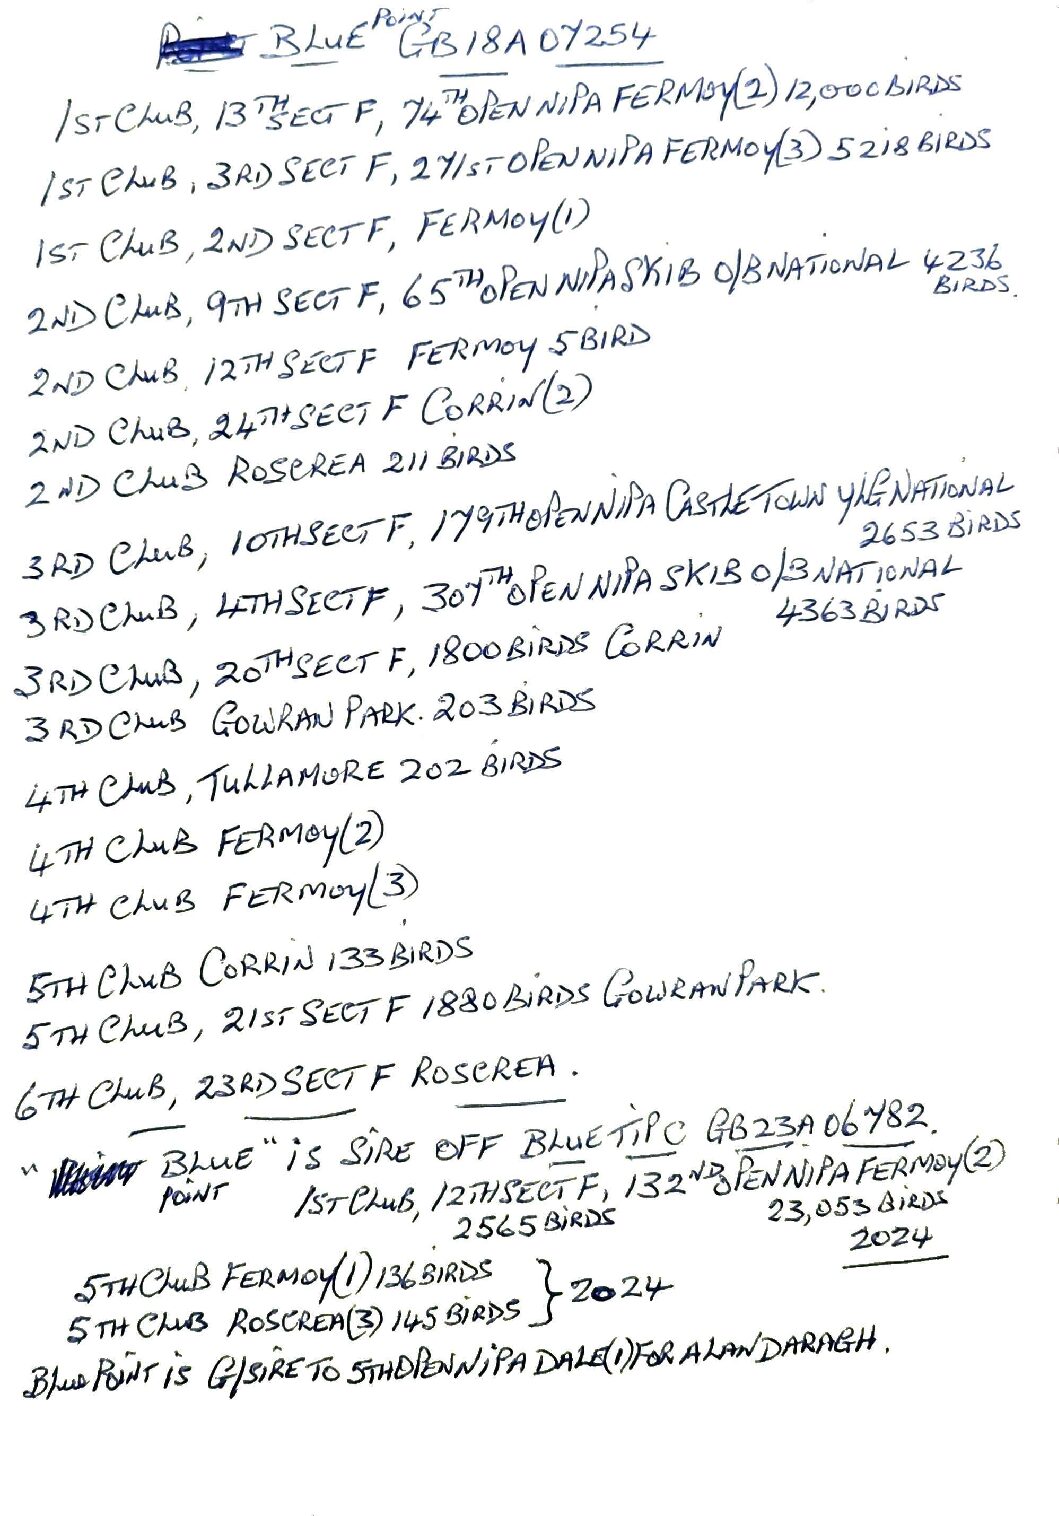 BLUE POINT GB18A07254
1ST CLUB, 13TH SECT F, 74TH OPEN NIPA FERMOY(2) 12,000 BIRDS
1ST CLUB, 3RD SECT F, 271ST OPEN NIPA FERMOY(3) 5218 BIRDS
1ST CLUB, 2ND SECT F, FERMOY(1)
2ND CLUB, 9TH SECT F, 65TH OPEN NIPA SKIB O/B NATIONAL 4236
BIRDS.
2ND CLUB, 12TH SECT F FERMOY 5 BIRD
2ND CLUB, 24TH SECT F CORRIN(2)
2ND CLUB ROSCREA 211 BIRDS
3RD CLUB, 10TH SECT F, 179TH OPEN NIPA CASTLETOWN YLG NATIONAL
2653 BIRDS
3RD CLUB, 4TH SECT F, 307TH OPEN NIPA SKIB O/B NATIONAL
4363 BIRDS
3RD CLUB, 20TH SECT F, 1800 BIRDS CORRIN
3RD CLUB GOWRAN PARK. 203 BIRDS
4TH CLUB, TULLAMORE 202 BIRDS
4TH CLUB FERMOY(2)
4TH CLUB FERMOY(3)
5TH CLUB CORRIN 133 BIRDS
5TH CLUB, 21ST SECT F 1880 BIRDS GOWRAN PARK.
6TH CLUB, 23RD SECT F ROSCREA.
" BLUE " IS SIRE OFF BLUE TIP C GB23A06782.
POINT 1ST CLUB, 12TH SECT F, 132ND OPEN NIPA FERMOY(2)
2565 BIRDS 23,053 BIRDS
2024
5TH CLUB FERMOY(1) 136 BIRDS
5TH CLUB ROSCREA(3) 145 BIRDS } 2024
BLUE POINT IS G/SIRE TO 5TH OPEN NIPA DALE(1) FOR ALAN DARAGH.